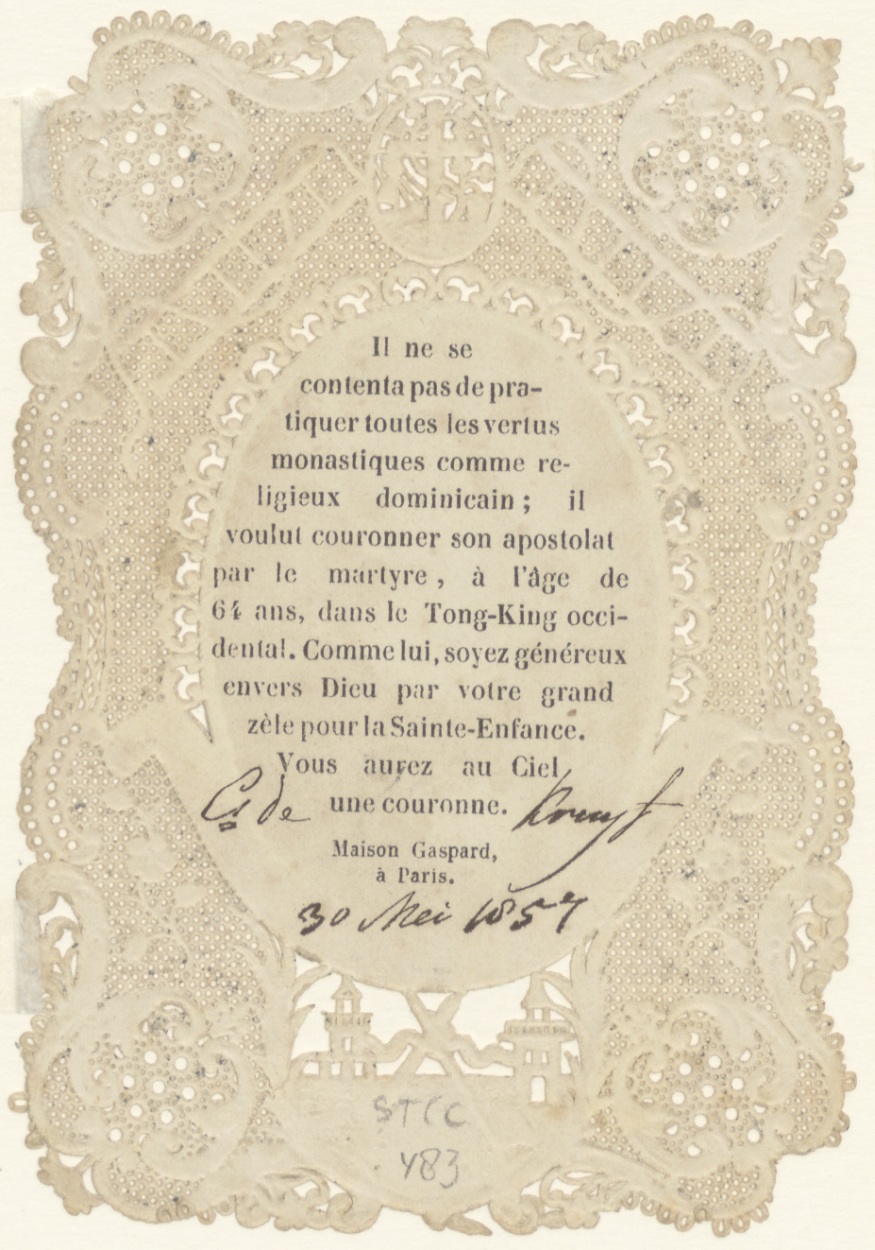 Il ne se
contenta pas de pra-
tiquer toutes les vertus
monastiques comme re-
ligieux dominicain ; il
voulut couronner son apostolat
par le martyre, à l'âge de
64 ans, dans le Tong-King occi-
dental. Comme lui, soyez généreux
envers Dieu par votre grand
zèle pour la Sainte-Enfance.
Vous aurez au Ciel
Cs de une couronne.
Maison Gaspard,
à Paris.
30 Mei 1857
STCC
483